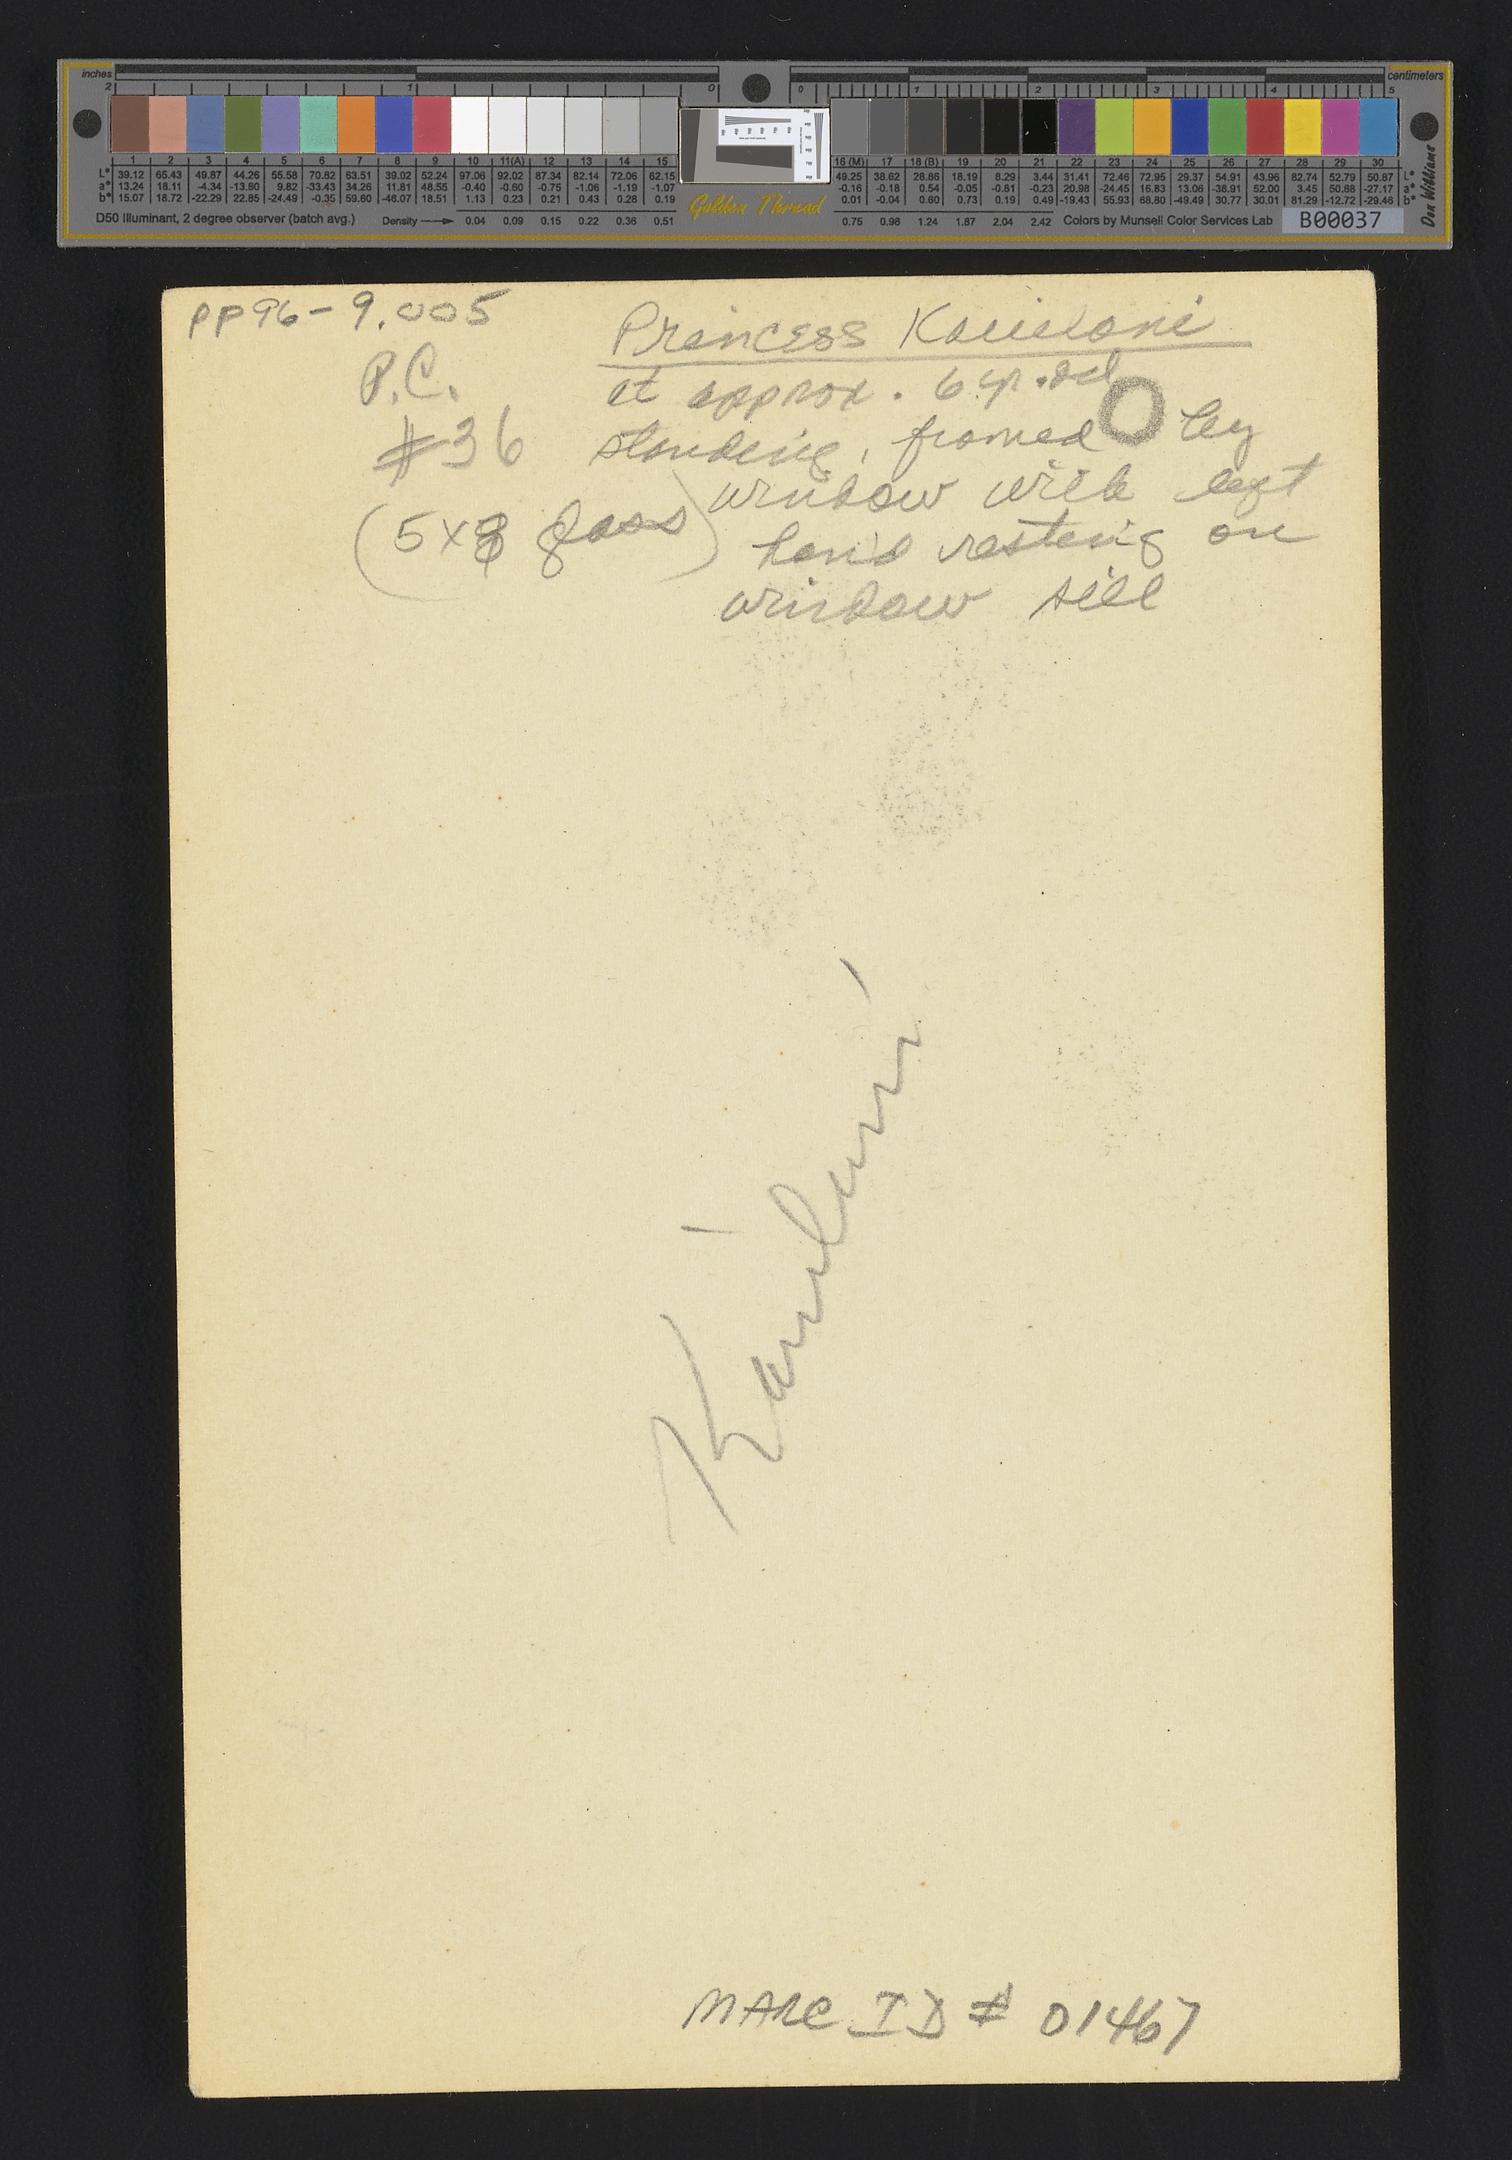 inches
centimeters
2 1 0 0 1 2 3 4 5
1 2 3 4 5 6 7 8 9 10 11(A) 12 13 14 15 16 (M) 17 18 (B) 19 20 21 22 23 24 25 26 27 28 29 30
L* 39.12 65.43 49.87 44.26 55.58 70.82 63.51 39.02 52.24 97.06 92.02 87.34 82.14 72.06 62.15 49.25 38.62 28.86 18.19 8.29 3.44 31.41 72.46 72.95 29.37 54.91 43.96 82.74 52.79 50.87 L*
a* 13.24 18.11 -4.34 -13.80 9.82 -33.43 34.26 11.81 48.55 -0.40 -0.60 -0.75 -1.06 -1.19 -1.07 -0.16 -0.18 0.54 -0.05 -0.81 -0.23 20.98 -24.45 16.83 13.06 -38.91 52.00 3.45 50.88 -27.17 a*
b* 15.07 18.72 -22.29 22.85 -24.49 -0.35 59.60 -46.07 18.51 1.13 0.23 0.21 0.43 0.28 0.19 0.01 -0.04 0.60 0.73 0.19 0.49 -19.43 55.93 68.80 -49.49 30.77 30.01 81.29 -12.72 -29.46 b*
D50 Illuminant, 2 degree observer (batch avg.) Density 0.04 0.09 0.15 0.22 0.36 0.51 Golden Thread 0.75 0.98 1.24 1.67 2.04 2.42 Colors by Munsell Color Services Lab B00037
Don Williams
PP96-9.005
Princess Kaiulani
P.C.
at approx. 6 yr. old
#36
standing, framed by
window with left
(5x8 glass)
hand resting on
window sill
Kaiulani
MARC ID # 01467